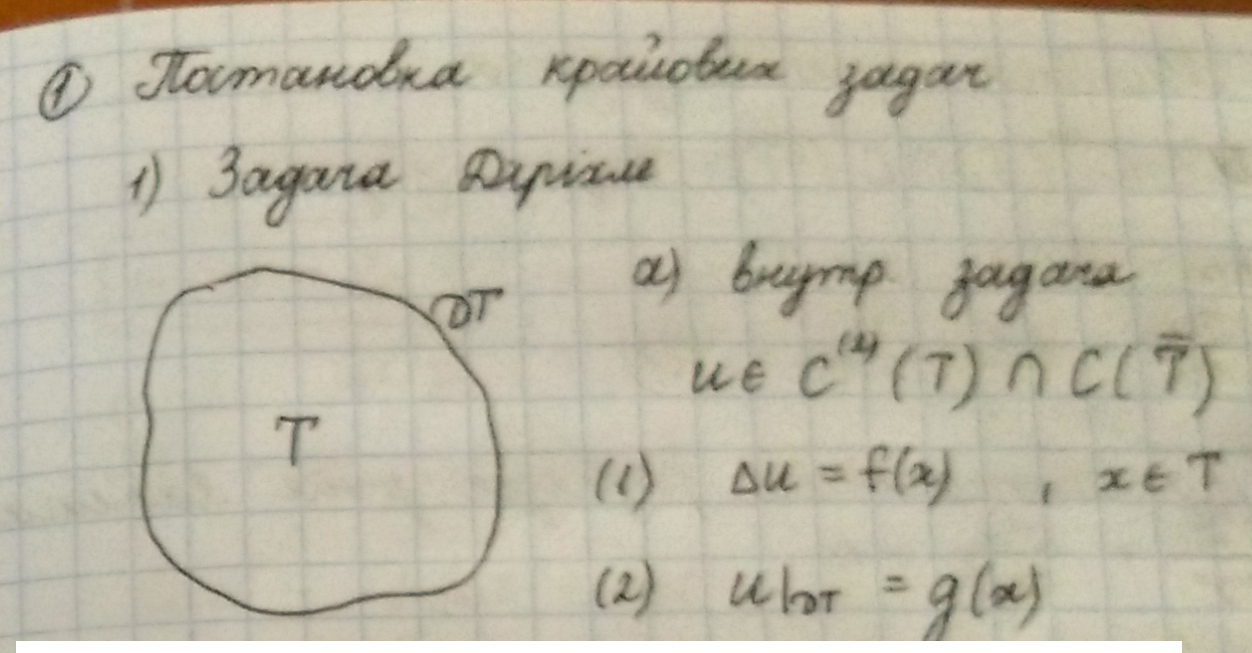 ① Постановка крайових задач
1) Задача Діріхле
∂T
а) внутр. задача
u ∈ C⁽²⁾(T) ∩ C(T̅)
T
(1) Δu = f(x) , x ∈ T
(2) u|∂T = g(x)